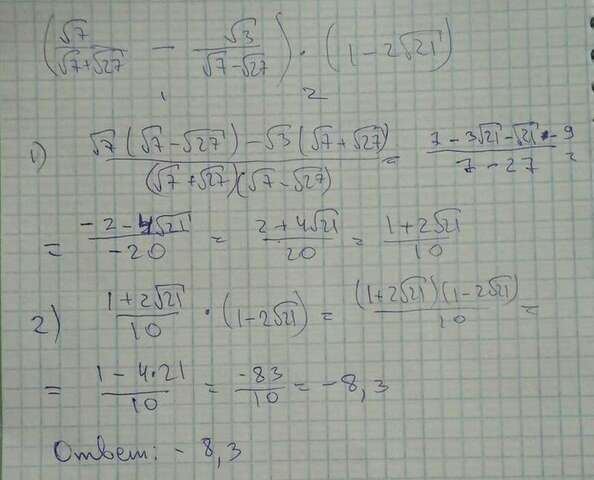 (√7/(√7+√27) − √3/(√7−√27)) · (1−2√21)
1 2
1) (√7(√7−√27)−√3(√7+√27))/((√7+√27)(√7−√27)) = (7−3√21−√21−9)/(7−27) =
= (−2−4√21)/(−20) = (2+4√21)/20 = (1+2√21)/10
2) (1+2√21)/10 · (1−2√21) = ((1+2√21)(1−2√21))/10 =
= (1−4·21)/10 = −83/10 = −8,3
Ответ: −8,3